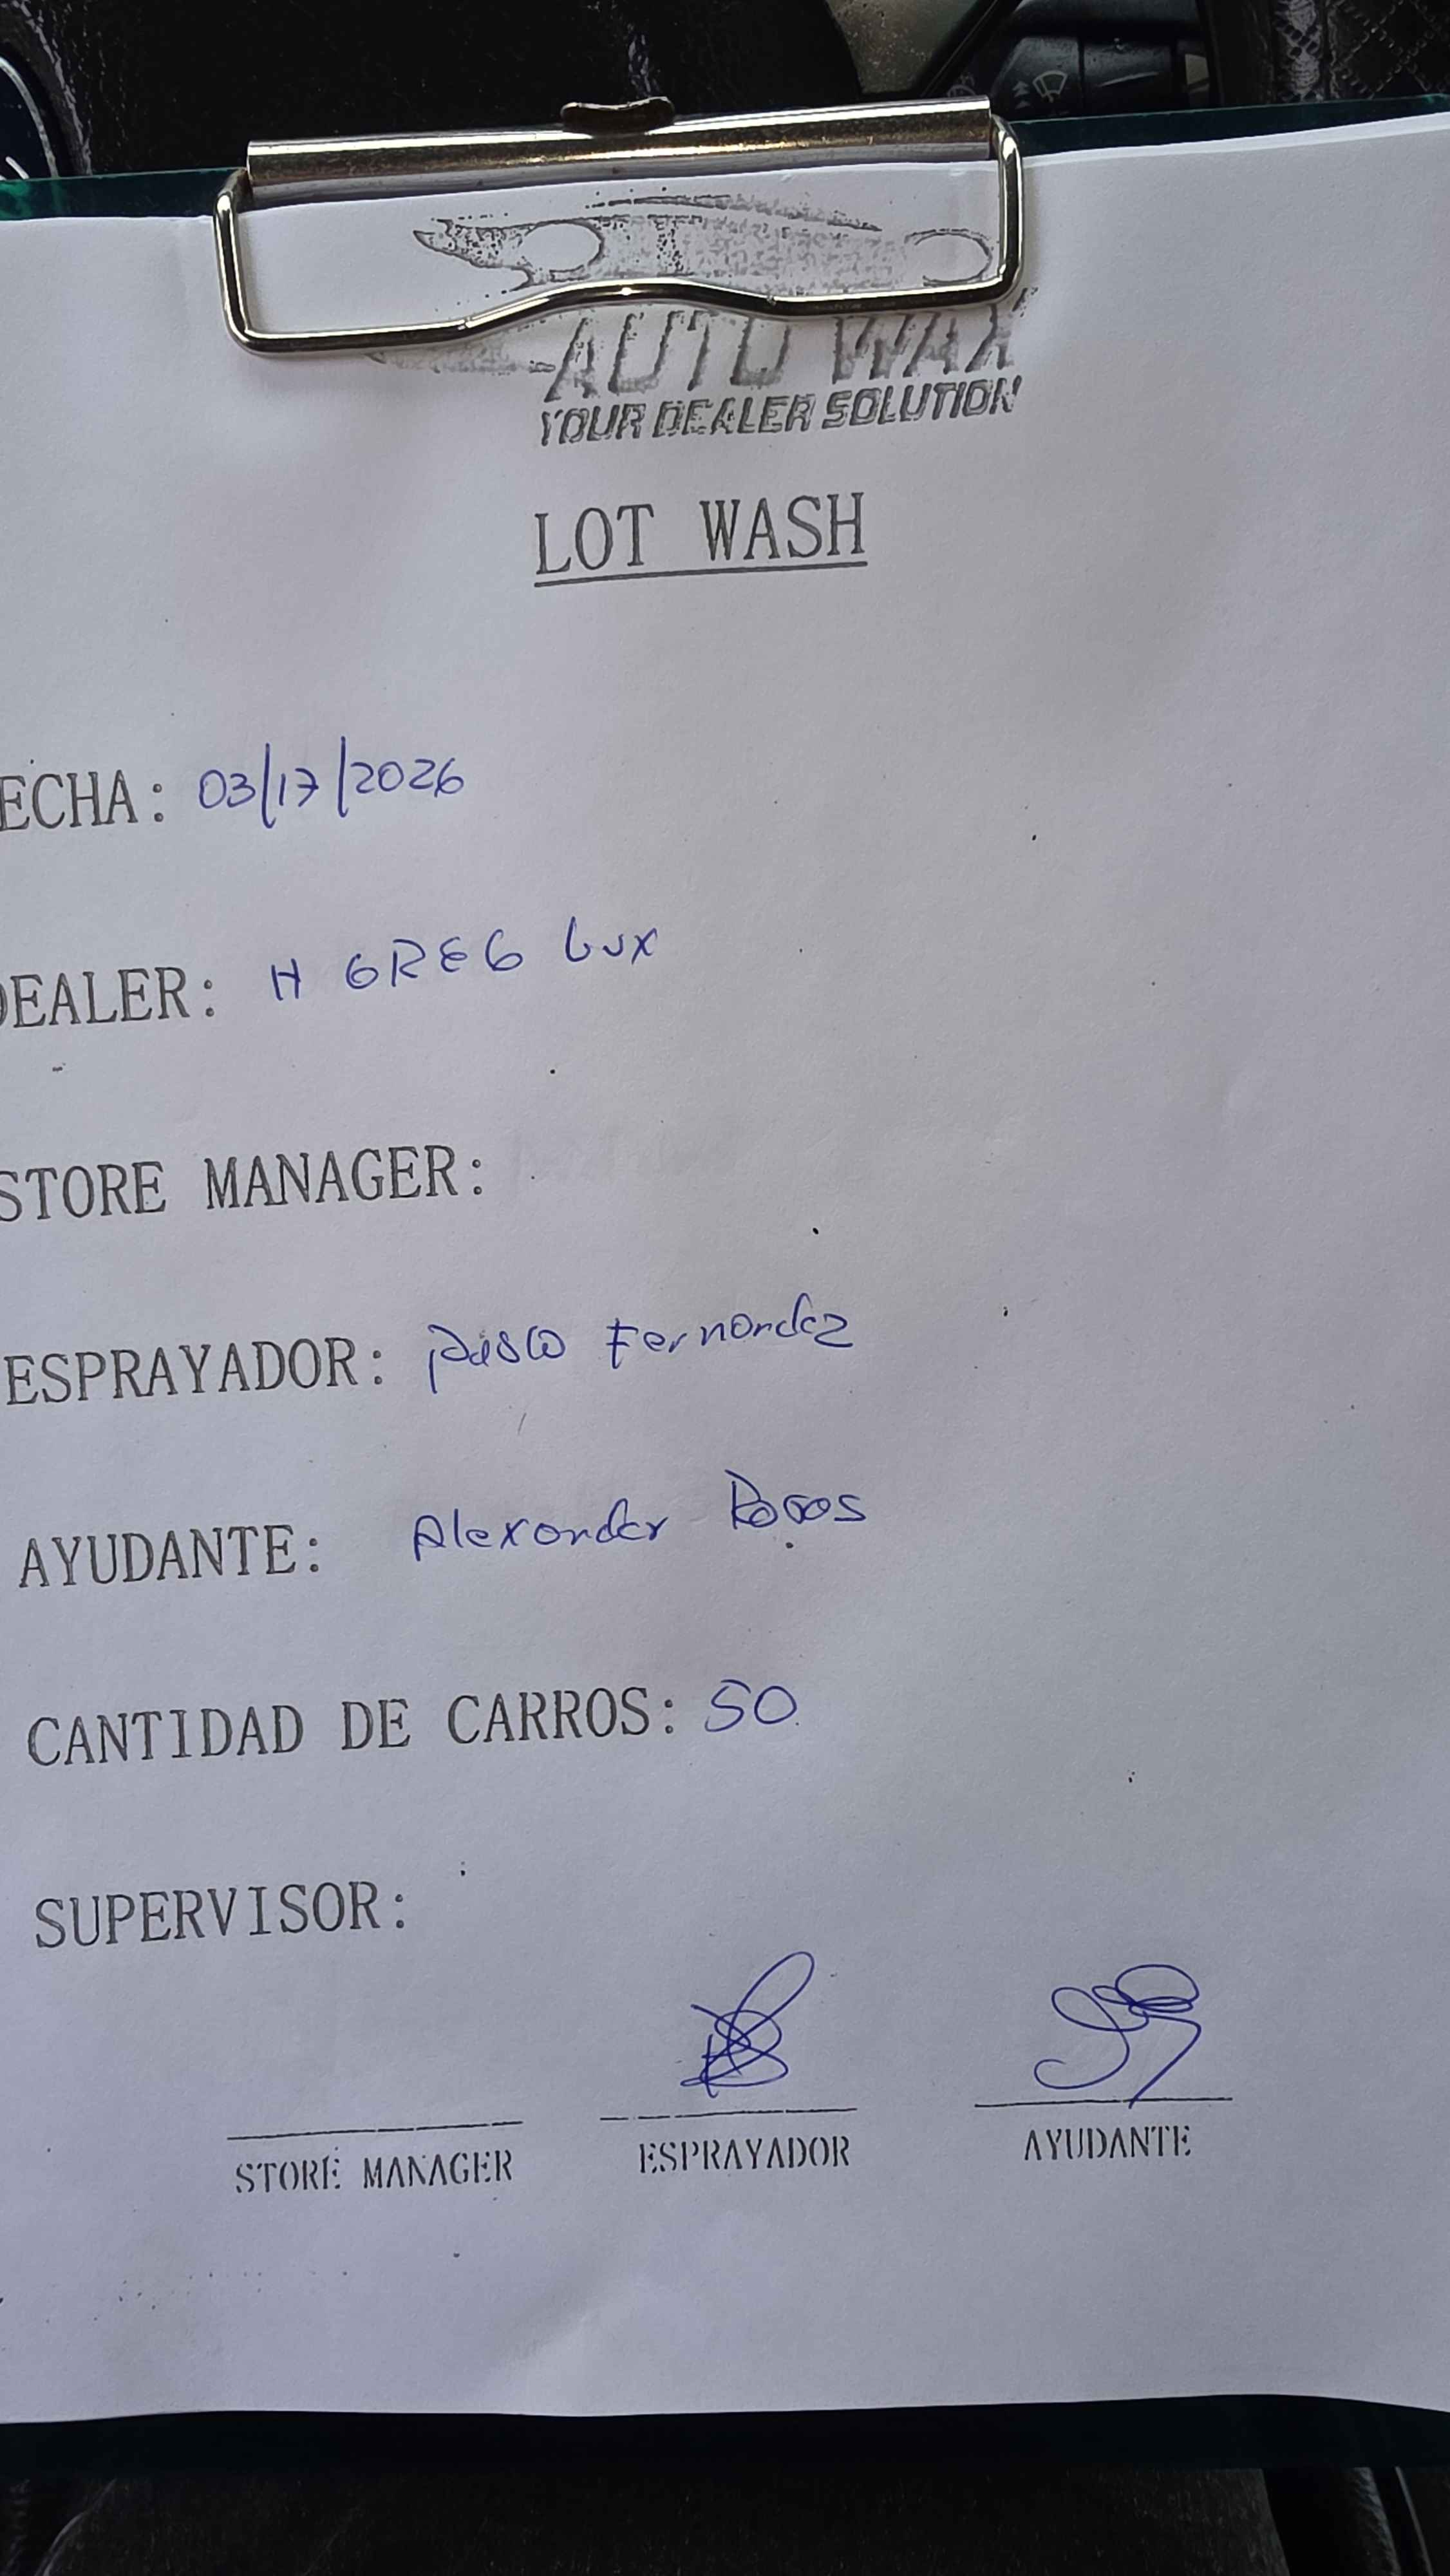 AUTO WAX
YOUR DEALER SOLUTION
LOT WASH
ECHA: 03/17/2026
DEALER: H GREG Lux
STORE MANAGER:
ESPRAYADOR: Pablo Fernandez
AYUDANTE: Alexander
CANTIDAD DE CARROS: 50
SUPERVISOR:
STORE MANAGER ESPRAYADOR AYUDANTE